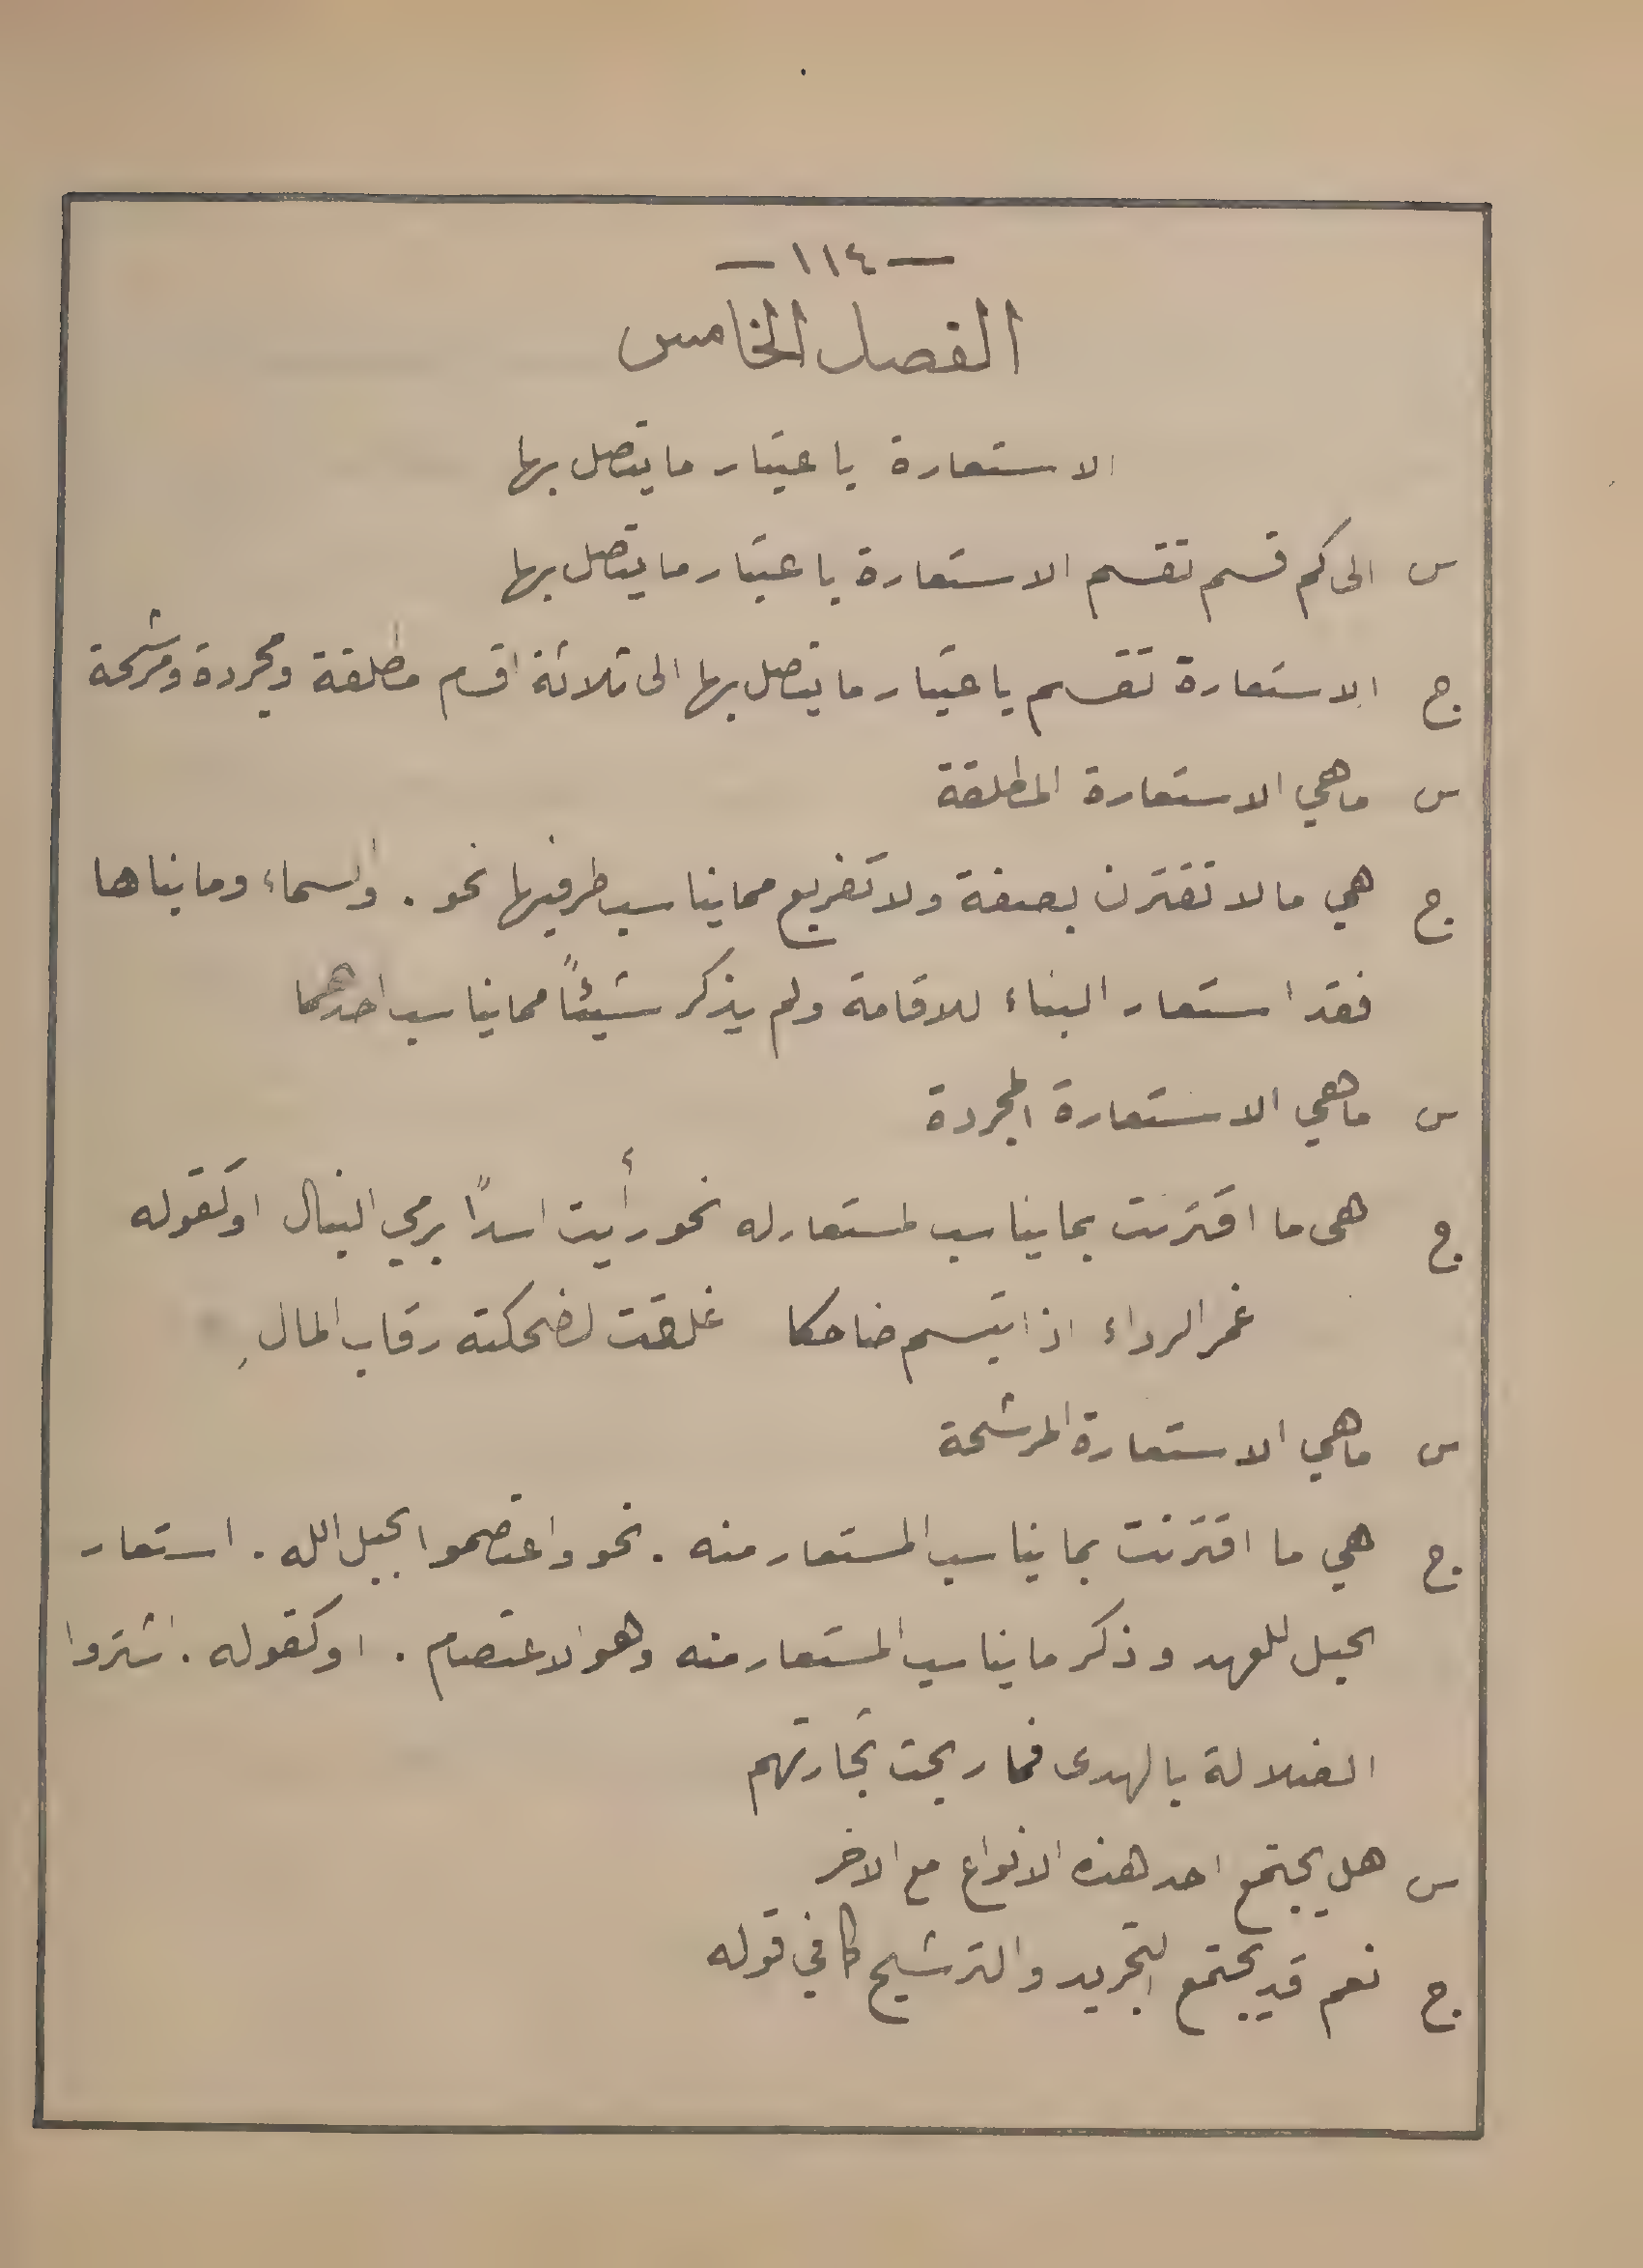 — ١١٤ —
الفصل الخامس
الاستعارة باعتبار ما يتصل بها
س الى كم قسم تقسم الاستعارة باعتبار ما يتصل بها
ج الاستعارة تقسم باعتبار ما يتصل بها الى ثلاثة اقسام مطلقة ومجردة ومرشحة
س ماهي الاستعارة المطلقة
ج هي ما لا تقترن بصفة ولا تفريع مما يناسب طرفيها نحو . والسماء وما بناها
فقد استعار البناء للاقامة ولم يذكر شيئاً مما يناسب احدهما
س ماهي الاستعارة المجردة
ج هي ما اقترنت بما يناسب لمستعار له نحو رأيت اسداً يرمي النبال او كقوله
غمر الرداء اذا تبسم ضاحكا غلقت لضحكته رقاب المالِ
س ماهي الاستعارة المرشحة
ج هي ما اقترنت بما يناسب المستعار منه . نحو واعتصموا بحبل الله . استعار
الحبل للعهد وذكر ما يناسب المستعار منه وهو الاعتصام . او كقوله . اشتروا
الضلالة بالهدى فما ربحت تجارتهم
س هل يجتمع احد هذه الانواع مع الاخر
ج نعم قد يجتمع التجريد والترشيح كما في قوله